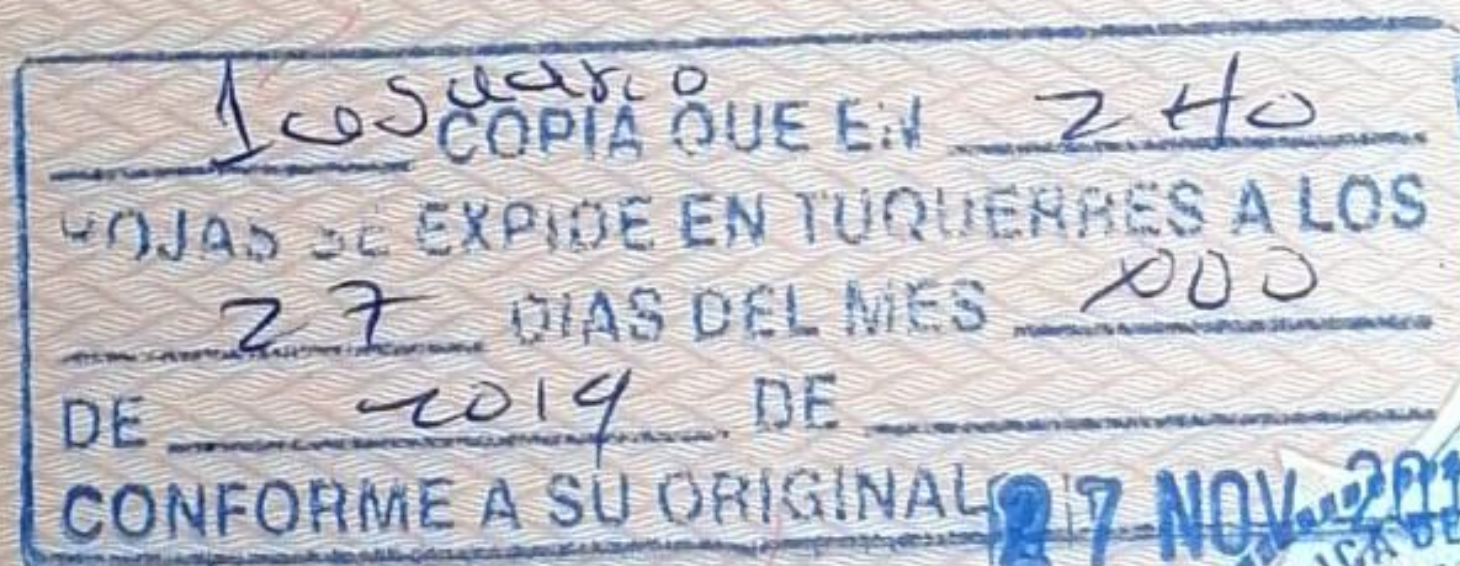 COPIA QUE EN 240
HOJAS SE EXPIDE EN TUQUERRES A LOS
27 DIAS DEL MES
DE 2019 DE
CONFORME A SU ORIGINAL
27 NOV. 201